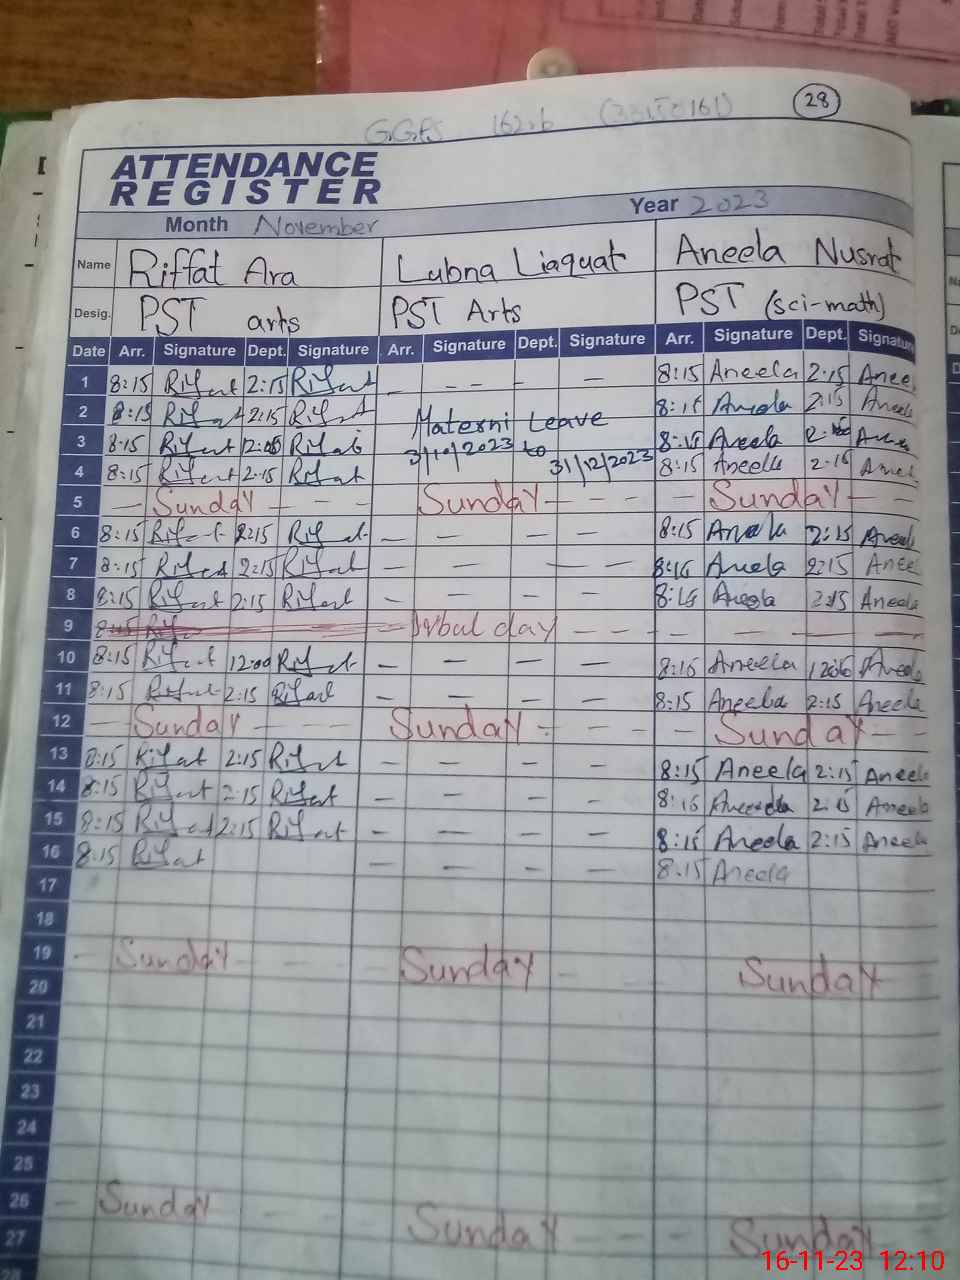 28
G.G.P.S 162.b
ATTENDANCE
REGISTER
Month November Year 2023
Name Riffat Ara Lubna Liaquat Aneela Nusrat
Desig. PST arts PST Arts PST (sci-math)
Date Arr. Signature Dept. Signature Arr. Signature Dept. Signature Arr. Signature Dept. Signature
1 8:15 Riffat 2:15 Riffat - - - - - 8:15 Aneela 2:15 Anee
2 8:15 Riffat 2:15 Riffat Materni Leave 8:15 Aneela 2:15 Aneela
3 8:15 Riffat Riffat 31/10/2023 to Aneela
4 8:15 Riffat 2:15 Riffat 31/12/2023 8:15 Aneela 2:15
5 - Sunday - - - Sunday - - - - Sunday - -
6 8:15 Riffat 2:15 Riffat - - - - 8:15 Aneela 2:15 Aneela
7 8:15 Riffat 2:15 Riffat - - - - 8:15 Aneela 2:15 Anee
8 8:15 Riffat 2:15 Riffat - - - - 8:15 Aneela 2:15 Aneela
9 day - - - - - -
10 8:15 Riffat 12:00 Riffat - - - - 8:15 Aneela Aneela
11 8:15 Riffat 2:15 Riffat - - - - 8:15 Aneela 2:15 Aneela
12 - Sunday - - - Sunday - - - - Sunday - -
13 8:15 Riffat 2:15 Riffat - - - - 8:15 Aneela 2:15 Aneela
14 8:15 Riffat 2:15 Riffat - - - - 8:15 Aneela 2:15 Aneela
15 8:15 Riffat 2:15 Riffat - - - - 8:15 Aneela 2:15 Aneela
16 8:15 Riffat - - - - 8:15 Aneela
17
18
19 - Sunday - - - - Sunday - - Sunday -
20
21
22
23
24
25
26 - Sunday - - - Sunday - - Sunday -
27
28
16-11-23 12:10